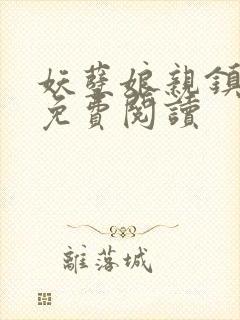 妖孽娘親鎮
免費閱讀
離落城